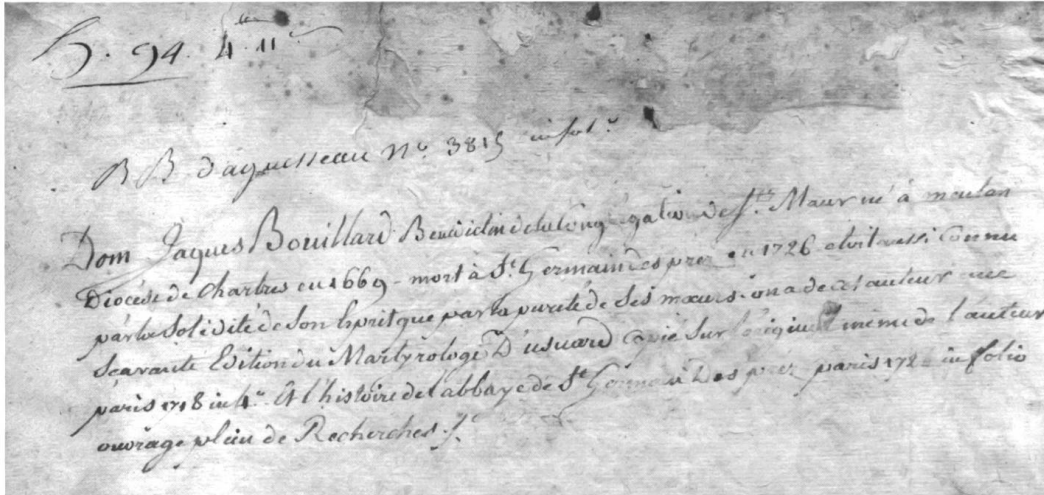 h. 94. 4. 11.
B B. daguesseau n.o 3815 in fol.o
Dom Jaques Bouillard Benedictin de la Congrégation de St. Maur né à meulan
Diocése de chartres en 1669 - mort à St. Germain des prez en 1726 etoit aussi Connu
par la Solidité de Son Esprit que par la pureté de Ses mœurs. on a de cet auteur une
Sçavante Edition du Martyrologe D'usuard copié Sur l'original même de l'auteur
paris 1718 in 4.o Et l'histoire de l'abbaye de St. Germain des prez paris 172 in folio
ouvrage plein de Recherches.